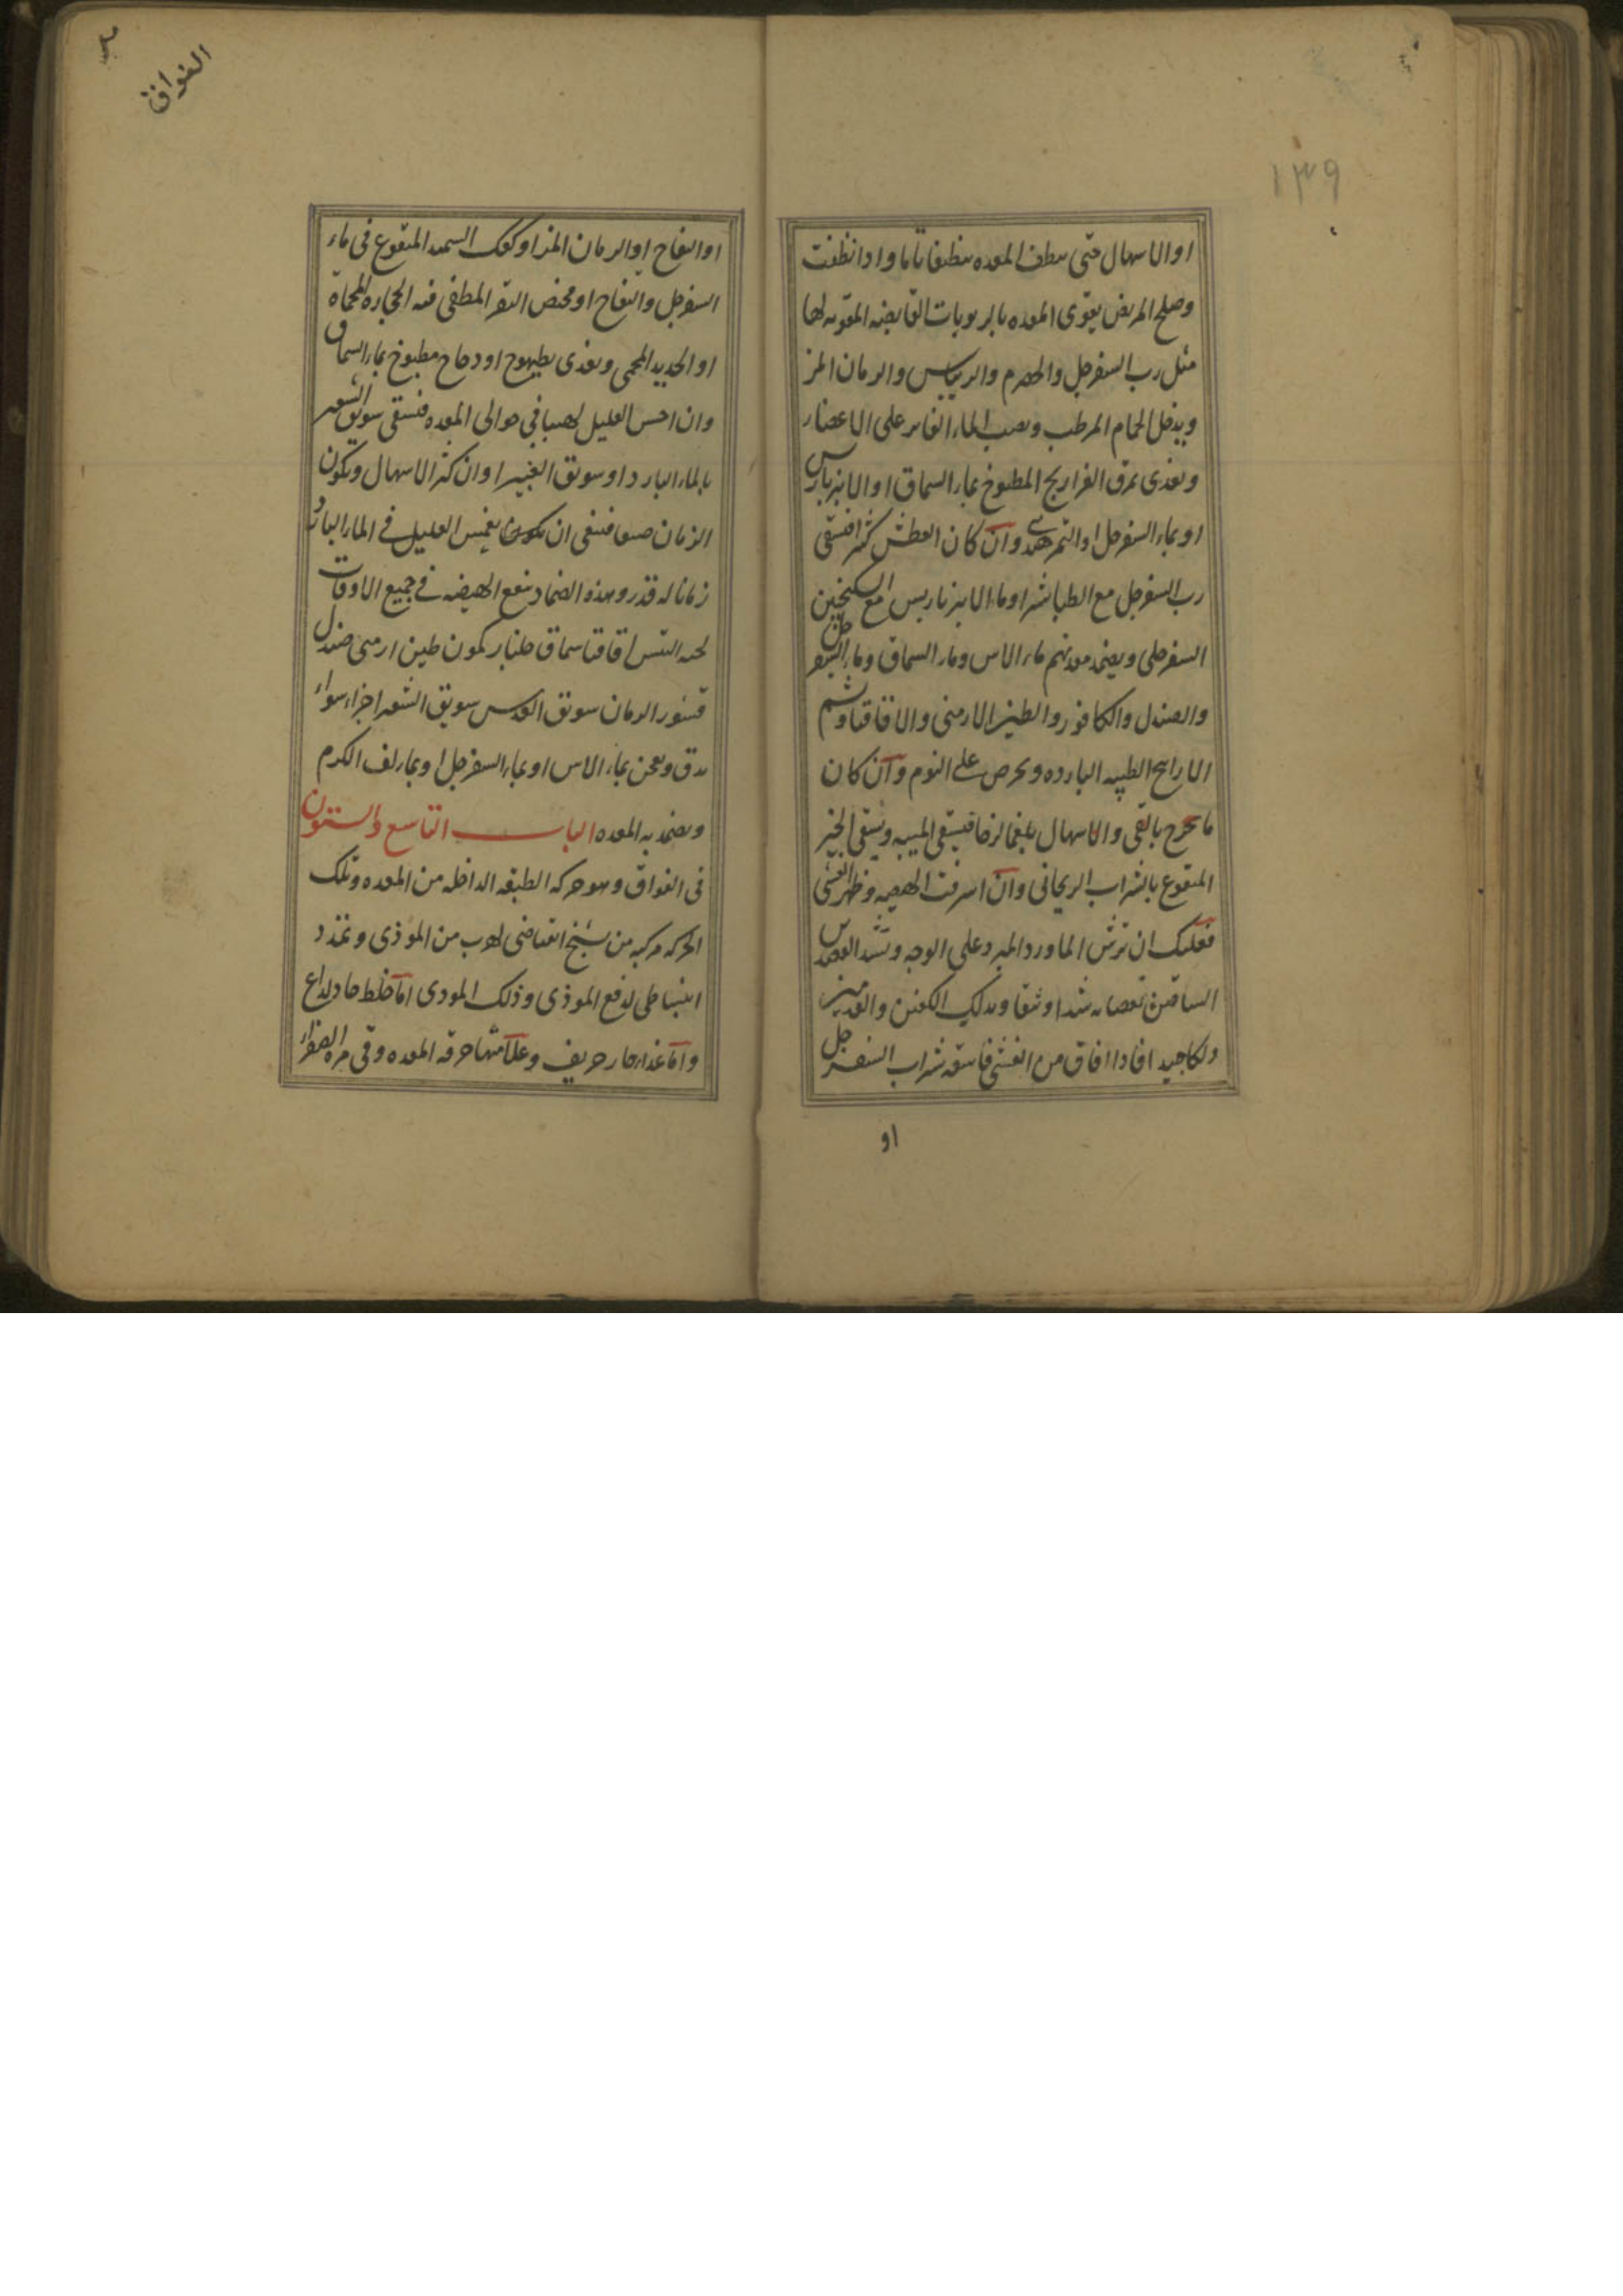 ١٣٩
او الاسهال حتى ينظف المعده تنظيفا تاما واذا نظفت
وصلح المريض يقوى المعده بالربوبات القابضه المقويه لها
مثل رب السفرجل والحصرم والريباس والرمان المز
ويدخل الحمام المرطب ويصب الماء الفاتر على الاعضاء
ويغذى بمرق الفراريج المطبوخ بماء السماق او الانبرباريس
او بماء السفرجل او التمر هندى وان كان العطش كثيرا فيسقى
رب السفرجل مع الطباشير او ماء الانبرباريس مع السكنجبين
السفرجلى ويضمد معدتهم بماء الاس وماء السماق وماء السفرجل
والصندل والكافور والطين الارمنى والاقاقيا وشم
الاراييح الطيبه البارده ويحرص على النوم وان كان
ما يخرج بالقى والاسهال بلغما لزجا فيسقى الميبه ويسقى الخبز
المنقوع بالشراب الريحانى وان اسرفت الهيضه وظهر الغشى
فعليك ان ترش الماورد المبرد على الوجه وتشد العضدين
الساقين بعصابه شدا وثيقا ويدلك الكفين والقدمين
دلكا جيدا فاذا افاق من الغشى فاسقه شراب السفرجل
او
الفواق
او التفاح او الرمان المز او كعك السميد المنقوع فى ماء
السفرجل والتفاح او مخيض البقر المطفى فيه الحجاره المحماة
او الحديد المحمى ويغذى بطيهوج او دجاج مطبوخ بماء السماق
وان احس العليل لهيبا فى حوالى المعده فيسقى سويق الشعير
بالماء البارد او سويق الغبيرا وان كثر الاسهال ويكون
الزمان صيفا فينبغى ان يغمس العليل فى الماء البارد
زمانا له قدر وهذه الضماد ينفع الهيضه فى جميع الاوقات
لحيه التيس اقاقيا سماق جلنار كمون طين ارمنى صندل
قشور الرمان سويق العدس سويق الشعير اجزاء سواء
يدق ويعجن بماء الاس او بماء السفرجل او بماء لف الكرم
ويضمد به المعده الباب التاسع والستون
فى الفواق وهو حركه الطبقه الداخله من المعده وتلك
الحركه مركبه من تشنج انقباضى لهرب من الموذى وتمدد
انبساطى لدفع الموذى وذلك الموذى اما خلط حاد لذاع
واما غذاء حار حريف وعلامتها حرقه المعده وقى مره الصفراء